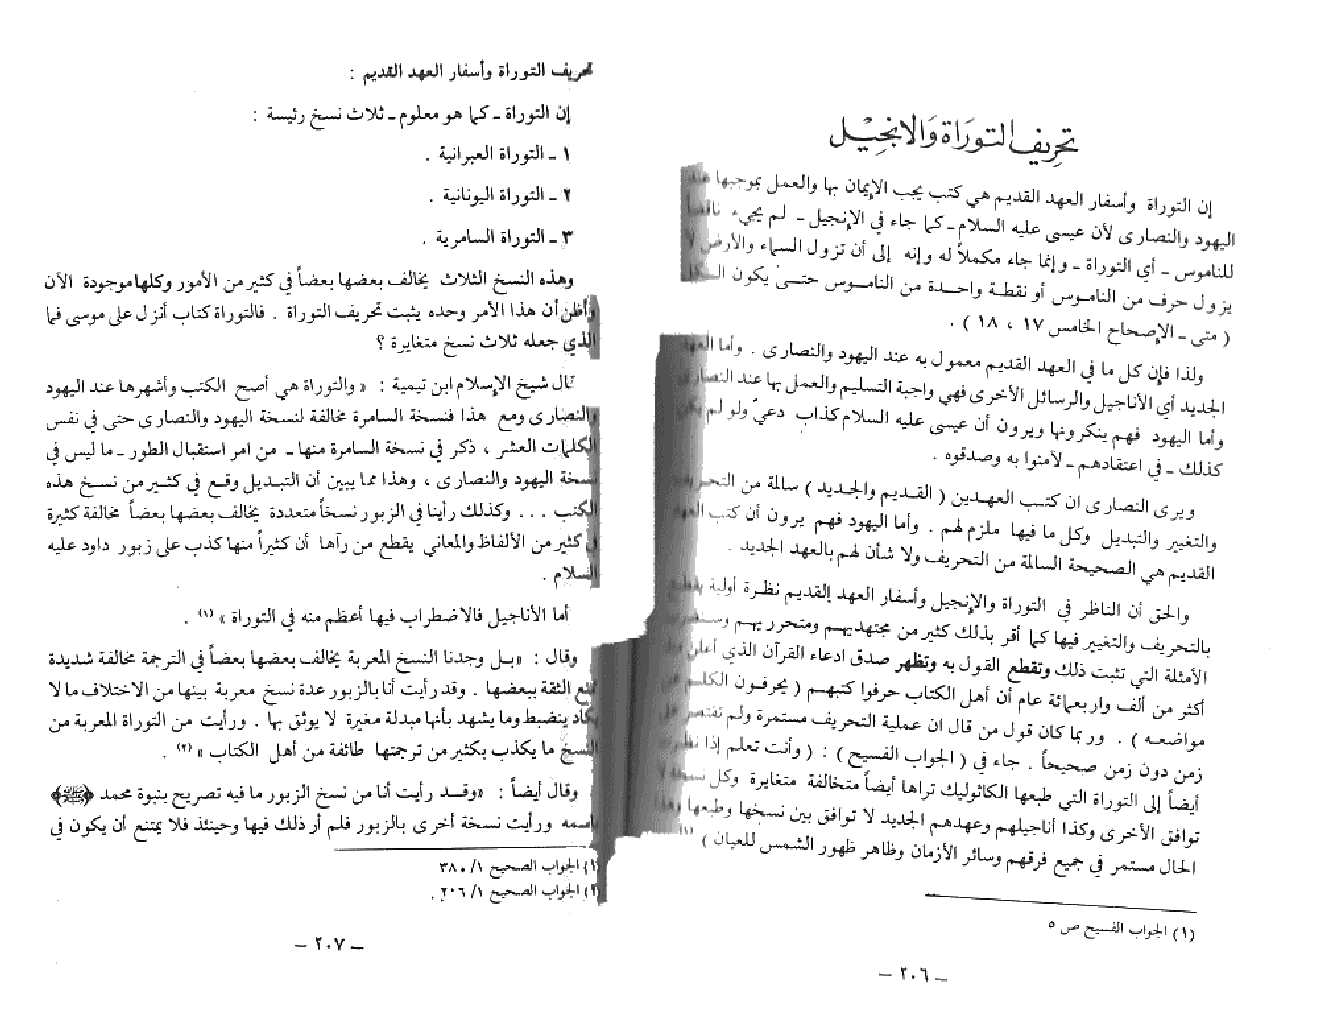 تحريف التوراة والانجيل
إن التوراة وأسفار العهد القديم هي كتب يجب الإيمان بها والعمل بموجبها عند
اليهود والنصارى لأن عيسى عليه السلام ـ كما جاء في الإنجيل ـ لم يجيء ناقضاً
للناموس ـ أي التوراة ـ وإنما جاء مكملاً له وإنه إلى أن تزول السماء والأرض لا
يزول حرف من الناموس أو نقطة واحدة من الناموس حتى يكون الكل
( متى ـ الإصحاح الخامس ١٧ ، ١٨ ) .
ولذا فإن كل ما في العهد القديم معمول به عند اليهود والنصارى . وأما العهد
الجديد أي الأناجيل والرسائل الأخرى فهي واجبة التسليم والعمل بها عند النصارى
وأما اليهود فهم ينكرونها ويرون أن عيسى عليه السلام كذاب دعيّ ولو لم يكن
كذلك ـ في اعتقادهم ـ لآمنوا به وصدقوه .
ويرى النصارى ان كتب العهدين ( القديم والجديد ) سالمة من التحريف
والتغيير والتبديل وكل ما فيها ملزم لهم . وأما اليهود فهم يرون أن كتب العهد
القديم هي الصحيحة السالمة من التحريف ولا شأن لهم بالعهد الجديد .
والحق أن الناظر في التوراة والإنجيل وأسفار العهد القديم نظرة أولية يقطع
بالتحريف والتغيير فيها كما أقر بذلك كثير من مجتهديهم ومتحرريهم
الأمثلة التي تثبت ذلك وتقطع القول به وتظهر صدق ادعاء القرآن الذي أعلن
أكثر من ألف واربعمائة عام أن أهل الكتاب حرفوا كتبهم ( يحرفون الكلم
مواضعه ) . وربما كان قول من قال ان عملية التحريف مستمرة ولم تقتصر على
زمن دون زمن صحيحاً . جاء في ( الجواب الفسيح ) : ( وأنت تعلم إذا
أيضاً إلى التوراة التي طبعها الكاثوليك تراها أيضاً متخالفة متغايرة وكل نسخة لا
توافق الأخرى وكذا أناجيلهم وعهدهم الجديد لا توافق بين نسخها وطبعها وهذا
الحال مستمر في جميع فرقهم وسائر الأزمان وظاهر ظهور الشمس للعيان ) (١)
(١) الجواب الفسيح ص ٥
ـ ٢٠٦ ـ
تحريف التوراة وأسفار العهد القديم :
إن التوراة ـ كما هو معلوم ـ ثلاث نسخ رئيسة :
١ ـ التوراة العبرانية .
٢ ـ التوراة اليونانية .
٣ ـ التوراة السامرية .
وهذه النسخ الثلاث يخالف بعضها بعضاً في كثير من الأمور وكلها موجودة الآن
وأظن أن هذا الأمر وحده يثبت تحريف التوراة . فالتوراة كتاب أنزل على موسى فما
الذي جعله ثلاث نسخ متغايرة ؟
قال شيخ الإسلام ابن تيمية : « والتوراة هي أصح الكتب وأشهرها عند اليهود
والنصارى ومع هذا فنسخة السامرة مخالفة لنسخة اليهود والنصارى حتى في نفس
الكلمات العشر ، ذكر في نسخة السامرة منها ـ من امر استقبال الطور ـ ما ليس في
نسخة اليهود والنصارى ، وهذا مما يبين أن التبديل وقع في كثير من نسخ هذه
الكتب . . . وكذلك رأينا في الزبور نسخاً متعددة يخالف بعضها بعضاً مخالفة كثيرة
في كثير من الألفاظ والمعاني يقطع من رآها أن كثيراً منها كذب على زبور داود عليه
السلام .
أما الأناجيل فالاضطراب فيها أعظم منه في التوراة » (١) .
وقال : « بل وجدنا النسخ المعربة يخالف بعضها بعضاً في الترجمة مخالفة شديدة
تمنع الثقة ببعضها . وقد رأيت أنا بالزبور عدة نسخ معربة بينها من الاختلاف ما لا
يكاد ينضبط وما يشهد بأنها مبدلة مغيرة لا يوثق بها . ورأيت من التوراة المعربة من
النسخ ما يكذب بكثير من ترجمتها طائفة من أهل الكتاب » (٢) .
وقال أيضاً : « وقد رأيت أنا من نسخ الزبور ما فيه تصريح بنبوة محمد ﷺ
باسمه ورأيت نسخة أخرى بالزبور فلم أر ذلك فيها وحينئذ فلا يمتنع أن يكون في
(١) الجواب الصحيح ١/ ٣٨٠
(٢) الجواب الصحيح ١/ ٢٠٦ .
ـ ٢٠٧ ـ